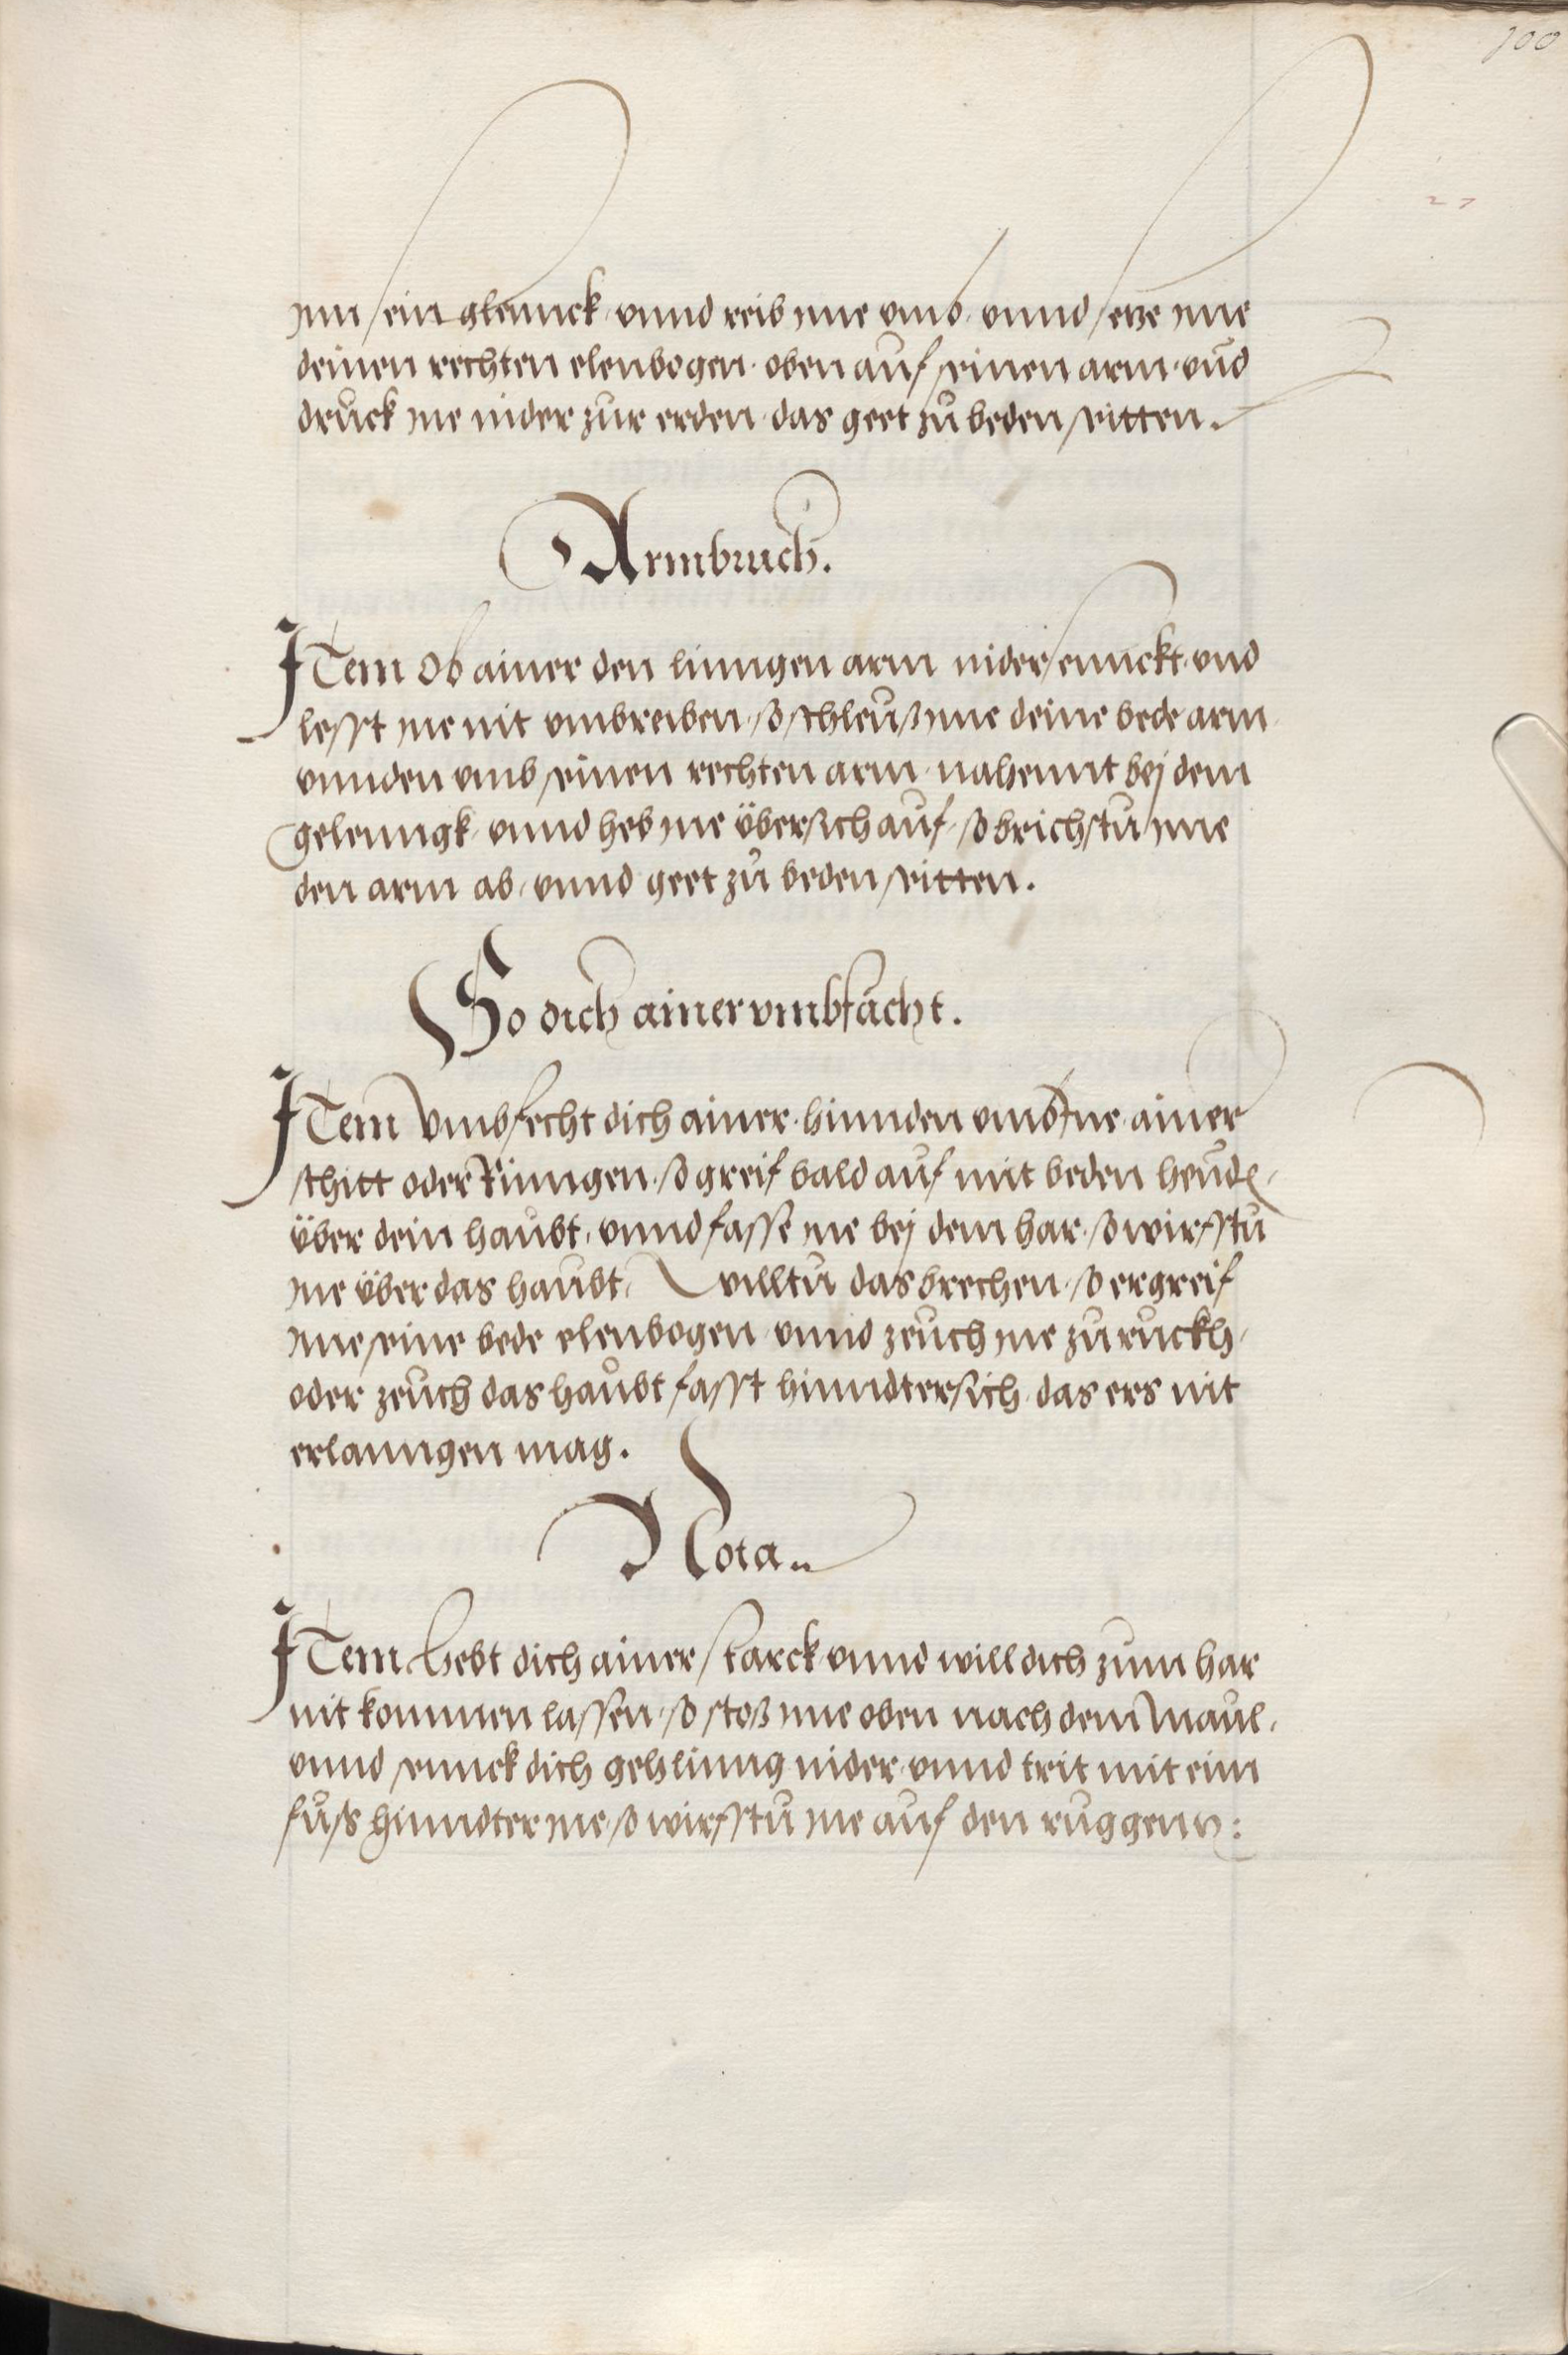 100
27
jnn sein glennck, vnnd reib jme vmb, vnnd setze jme
deinen rechten elenbogen, oben auf seinen arm, vnd
druck jne nider zur erden, das geet zů beden seitten.
Armbruch.
JTem Ob ainer den linngen arm nider sennckt, vnd
lesst jne nit vmbreiben, so schleuß jme deine bede arm
vnnden vmb seinen rechten arm, nahennt bej dem
gelenngk, vnnd heb jne übersich auf, so brichstu jme
den arm ab, vnnd geet zů beden seitten.
So dich ainer vmbfächt.
JTem Vmbfecht dich ainer, hinnden vmb jne, ainer
schitt oder Rinngen, so greif bald auf mit beden hennden,
über dein haubt, vnnd fasse jne bej dem har, so wirfstu
jne über das haubt, Willtu das brechen, so ergreif
jme seine bede elenbogen vnnd zeuch jne zu ruckh,
oder zeuch das haubt fasst hinndtersich, das ers nit
erlanngen mag.
Nota.
JTem Hebt dich ainer starck vnnd will dich zum har
nit kommen lassen, so stoß jme oben nach dem Maul,
vnnd sennck dich gehlinng nider, vnnd trit mit eim
fuß hinndter jne, so wirfstu jne auf den ruggenn: